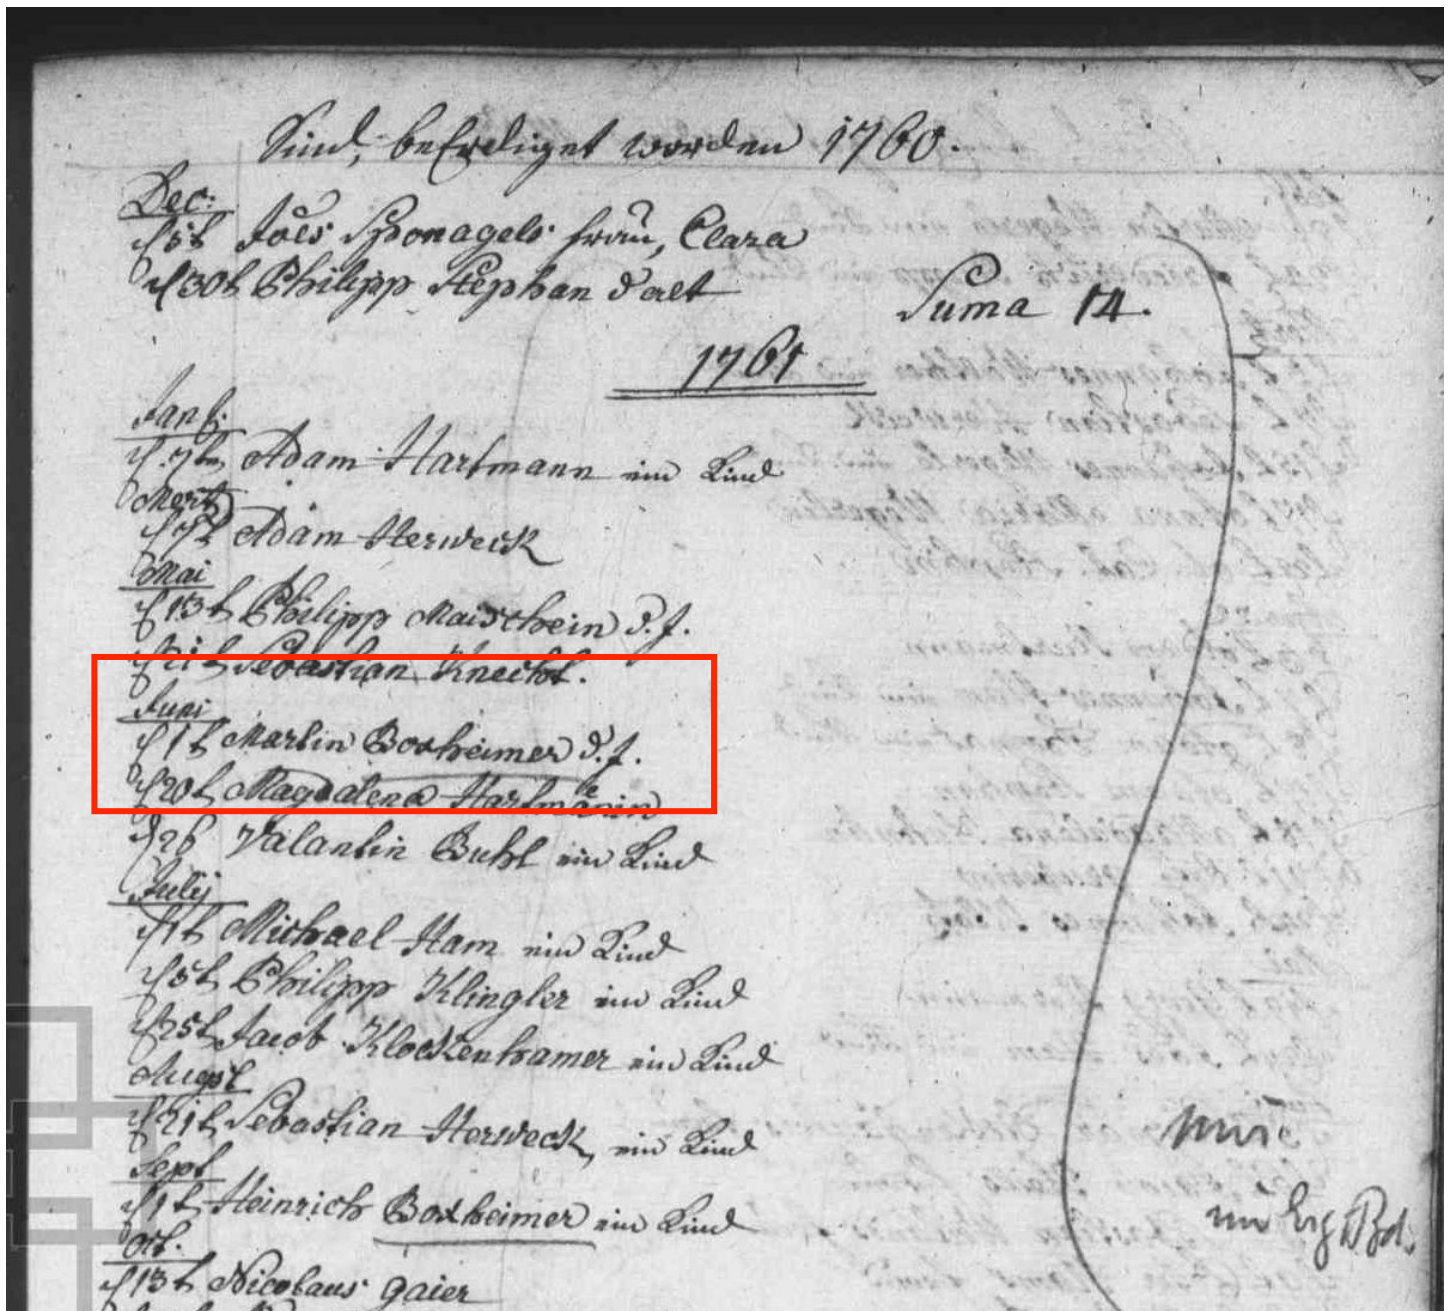 Sind, beErdiget worden 1760.
Dec:
d 5t Joës Sponagels frau, Clara
d 30t Philipp Stephan d alt
Suma 14.
1761
d 7tn Adam Hartmann ein Kind
Mertz
d 7t Adam Herweck
Mai
d 13t Philipp Maischein d. J.
d 21t Sebastian Knecht.
Juni
d 1t Martin Boxheimer d. J.
d 20t Magdalena Hartmänin
d 26 Valantin Buhl ein Kind
Julij
d 1t Michael Ham ein Kind
d 5t Philipp Klingler ein Kind
d 25t Jacob Klockenhamer ein Kind
Augst
d 21t Sebastian Herweck, ein Kind
Sept
d 1t Heinrich Boxheimer ein Kind
Oct.
d 13t Nicolaus gaier